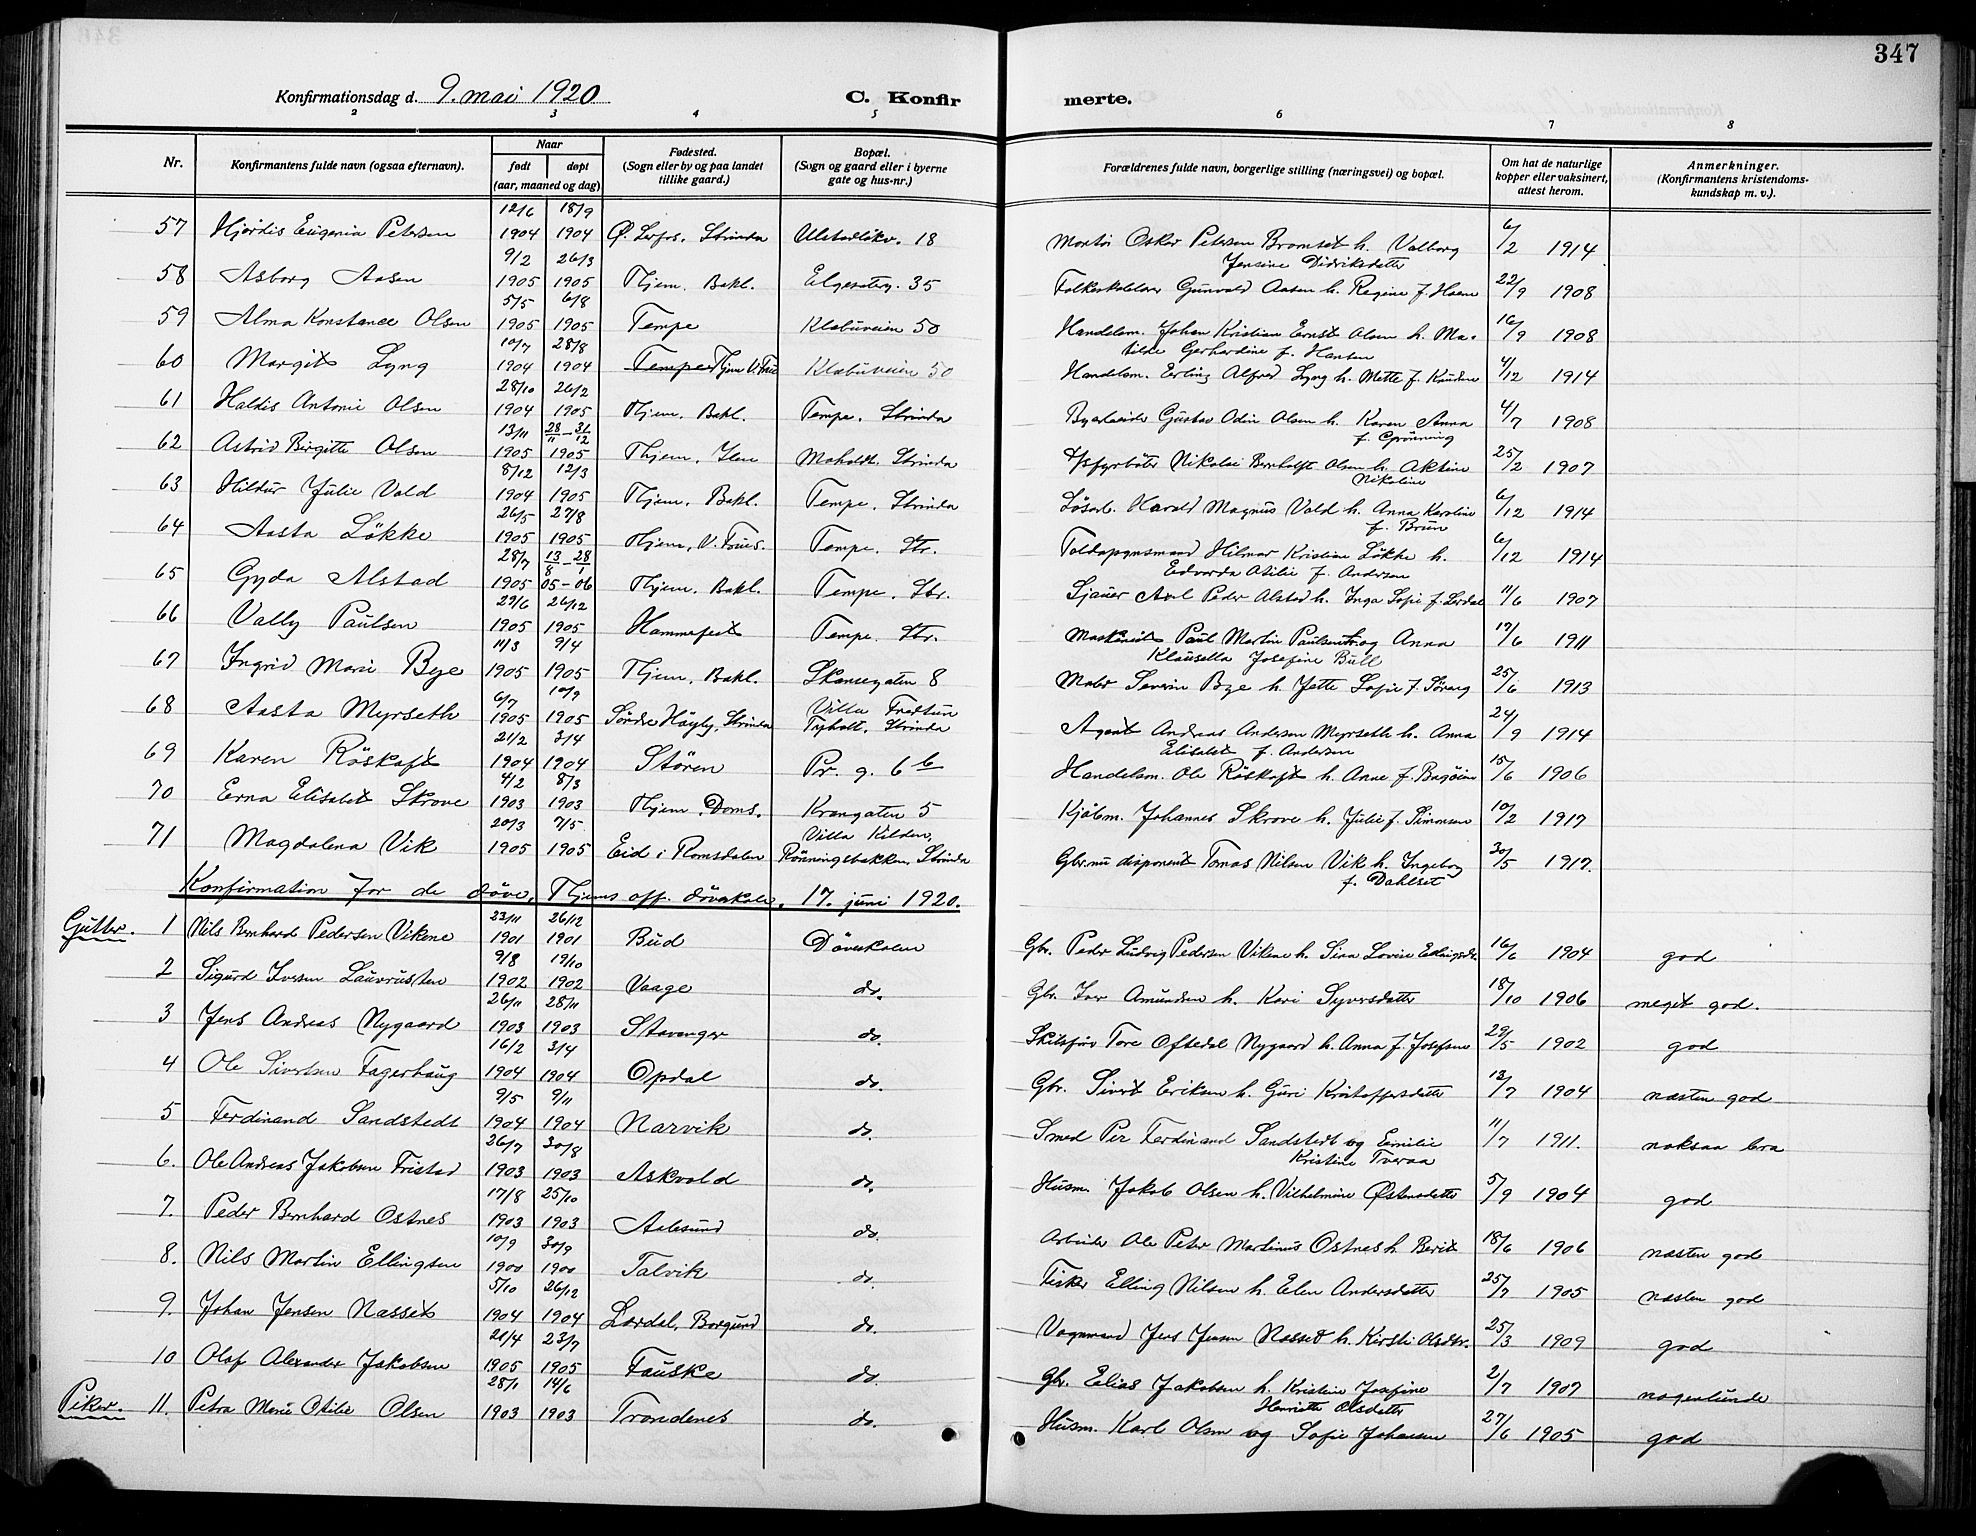 347
Konfirmationsdag d. 9. mai 1920 C. Konfirmerte.
2 3 4 5 6 7 8
Nr. Konfirmantens fulde navn (ogsaa efternavn). Naar født døpt (aar, maaned og dag) Fødested. (Sogn eller by og paa landet tillike gaard.) Bopæl. (Sogn og gaard eller i byerne gate og hus-nr.) Forældrenes fulde navn, borgerlige stilling (næringsvei) og bopæl. Om hat de naturlige kopper eller vaksinert, attest herom. Anmerkninger. (Konfirmantens kristendoms-kundskap m. v.).
57 Hjördis Eugenia Petersen 12/6 1904 18/9 1904 Ø. Lerfos, Strinda Ulstadløkv. 18 Oskar Petersen Bromset h. Valborg Jensine Didriksdatter 6/2 1914
58 Asborg Aasen 9/2 1905 26/3 1905 Thjem, Bakl. Elgesæterg. 35 Folkeskolelærer Gunvald Aasen h. Regine f. Moen 22/9 1908
59 Alma Konstance Olsen 5/5 1905 6/8 1905 Tempe Klæbuveien 50 Handelsm. Johan Kristian Ernst Olsen h. Matilde Gerhardine f. Hansen 16/9 1908
60 Margit Lyng 10/7 1904 28/8 1904 Tempe Thjem V. Frue Klæbuveien 50 Handelsm. Erling Alfred Lyng h. Mette f. Knudsen 4/12 1914
61 Haldis Antonie Olsen 28/10 1904 26/2 1905 Thjem, Bakl. Tempe, Strinda Byarbeider Gustav Odin Olsen h. Karen Anna f. Grønning 4/7 1908
62 Astrid Birgitte Olsen 13/11 1905 28/11 - 31/12 1905 Thjem, Ilen Moholdt, Strinda Nikolai Bernholft Olsen h. Aktine Nikoline 25/2 1907
63 Hildur Julie Vold 8/12 1904 12/3 1905 Thjem, Bakl. Tempe, Strinda Løsarb. Harald Magnus Vold h. Anna Karoline f. Brun 6/12 1914
64 Aasta Løkke 26/5 1905 27/8 1905 Thjem, V. Frues. Tempe, Str. Toldopsynsmand Hilmar Kristian Løkke h. Edvarda Otilie f. Andersen 6/12 1914
65 Gyda Alstad 28/7 1905 13/8 - 28/1 05-06 Thjem, Bakl. Tempe, Str. Sjauer Axel Peder Alstad h. Inga Sofie f. Lerdal 11/6 1907
66 Vally Paulsen 29/6 1905 26/12 1905 Hammefest Tempe, Str. Maskinist Paul Martin Paulsen og Anna Klausella Josefine Bull 19/6 1911
67 Ingrid Marie Bye 11/3 1905 9/4 1905 Thjem, Bakl. Skansegaten 8 Maler Severin Bye h. Jette Sofie f. 25/6 1913
68 Aasta Myrseth 6/7 1905 10/9 1905 Söndre Høyby, Strinda Villa Fredtun Tyholt, Strinda Agent Andreas Andersen Myrseth h. Anna Elisabet f. Andersen 24/9 1914
69 Karen Röskaft 21/2 1904 3/4 1904 Stören Pr. g. 6 b Handelsm. Ole Röskaft h. Anne f. 15/6 1906
70 Erna Elisabet Skrove 4/2 1903 8/3 1903 Thjem, Doms. Krangaten 5 Kjøbm. Johannes Skrove h. Julie f. Simonsen 10/2 1917
71 Magdalena Vik 20/3 1905 7/5 1905 Eid i Romsdalen Villa Kilden, Rönningsbakken, Strinda Gbr. nu disponent Tomas Nilsen Vik h. Ingeborg f. Dahlset 30/5 1917.
Konfirmation for de døve, Thjems off. døveskole, 17. juni 1920.
Gutter. 1 Nils Bernhard Pedersen Vikene 23/11 1901 26/12 1901 Bud Døveskolen Gbr. Peder Ludvig Pedersen Vikene h. Sina Lovise 16/6 1904 god
2 Sigurd Iversen Lauvrusten 9/8 1902 19/10 1902 Vaage do. Gbr. Iver Amundsen h. Kari Syversdatter 18/10 1906 meget god.
3 Jens Andreas Nygaard 26/11 1903 28/11 1903 Stavanger do. Tore Oftedal Nygaard h. Anna f. Josefsen 29/5 1902 god
4 Ole Sivertsen Fagerhaug 16/2 1904 3/4 1904 Opdal do. Gbr. Sivert Eriksen h. Guri Kristoffersdatter 13/7 1904 næsten god
5 Ferdinand Sandstedt 9/5 1904 9/11 1904 Narvik do. Smed Per Ferdinand Sandstedt og Emilie Kristine Tveraa 11/7 1911. noksaa bra
6. Ole Andreas Jakobsen Fristad 26/7 1903 30/8 1903 Askvold do. Husm. Jakob Olsen h. Vilhelmine Østensdatter 5/9 1904 god
7. Peder Bernhard Ostnes 17/8 1903 25/10 1903 Aalesund do. Arbeider Ole Peter Martinus Ostnes h. Berit 18/6 1906 næsten god
8. Nils Martin Ellingsen 10/9 1900 30/9 1900 Talvik do. Fisker Elling Nilsen h. Elen Andersdatter 25/7 1905 næsten god
9. Johan Jensen Næsset 5/10 1904 26/12 1904 Lærdal, Borgund do. Vognmand Jens Jensen Næsset h. Kirsti Olsdtr. 25/3 1909 god
10 Olaf Alexander Jakobsen 21/4 1905 23/7 1905 Fauske do. Gbr. Elias Jakobsen h. Kristine Josefine Henriette Olsdatter 2/7 1907 nogenlunde
Piker. 11. Petra Marie Otilie Olsen 28/1 1903 14/6 1903 Trondenes do. Husm. Karl Olsen og Sofie Johansen 27/6 1905 god